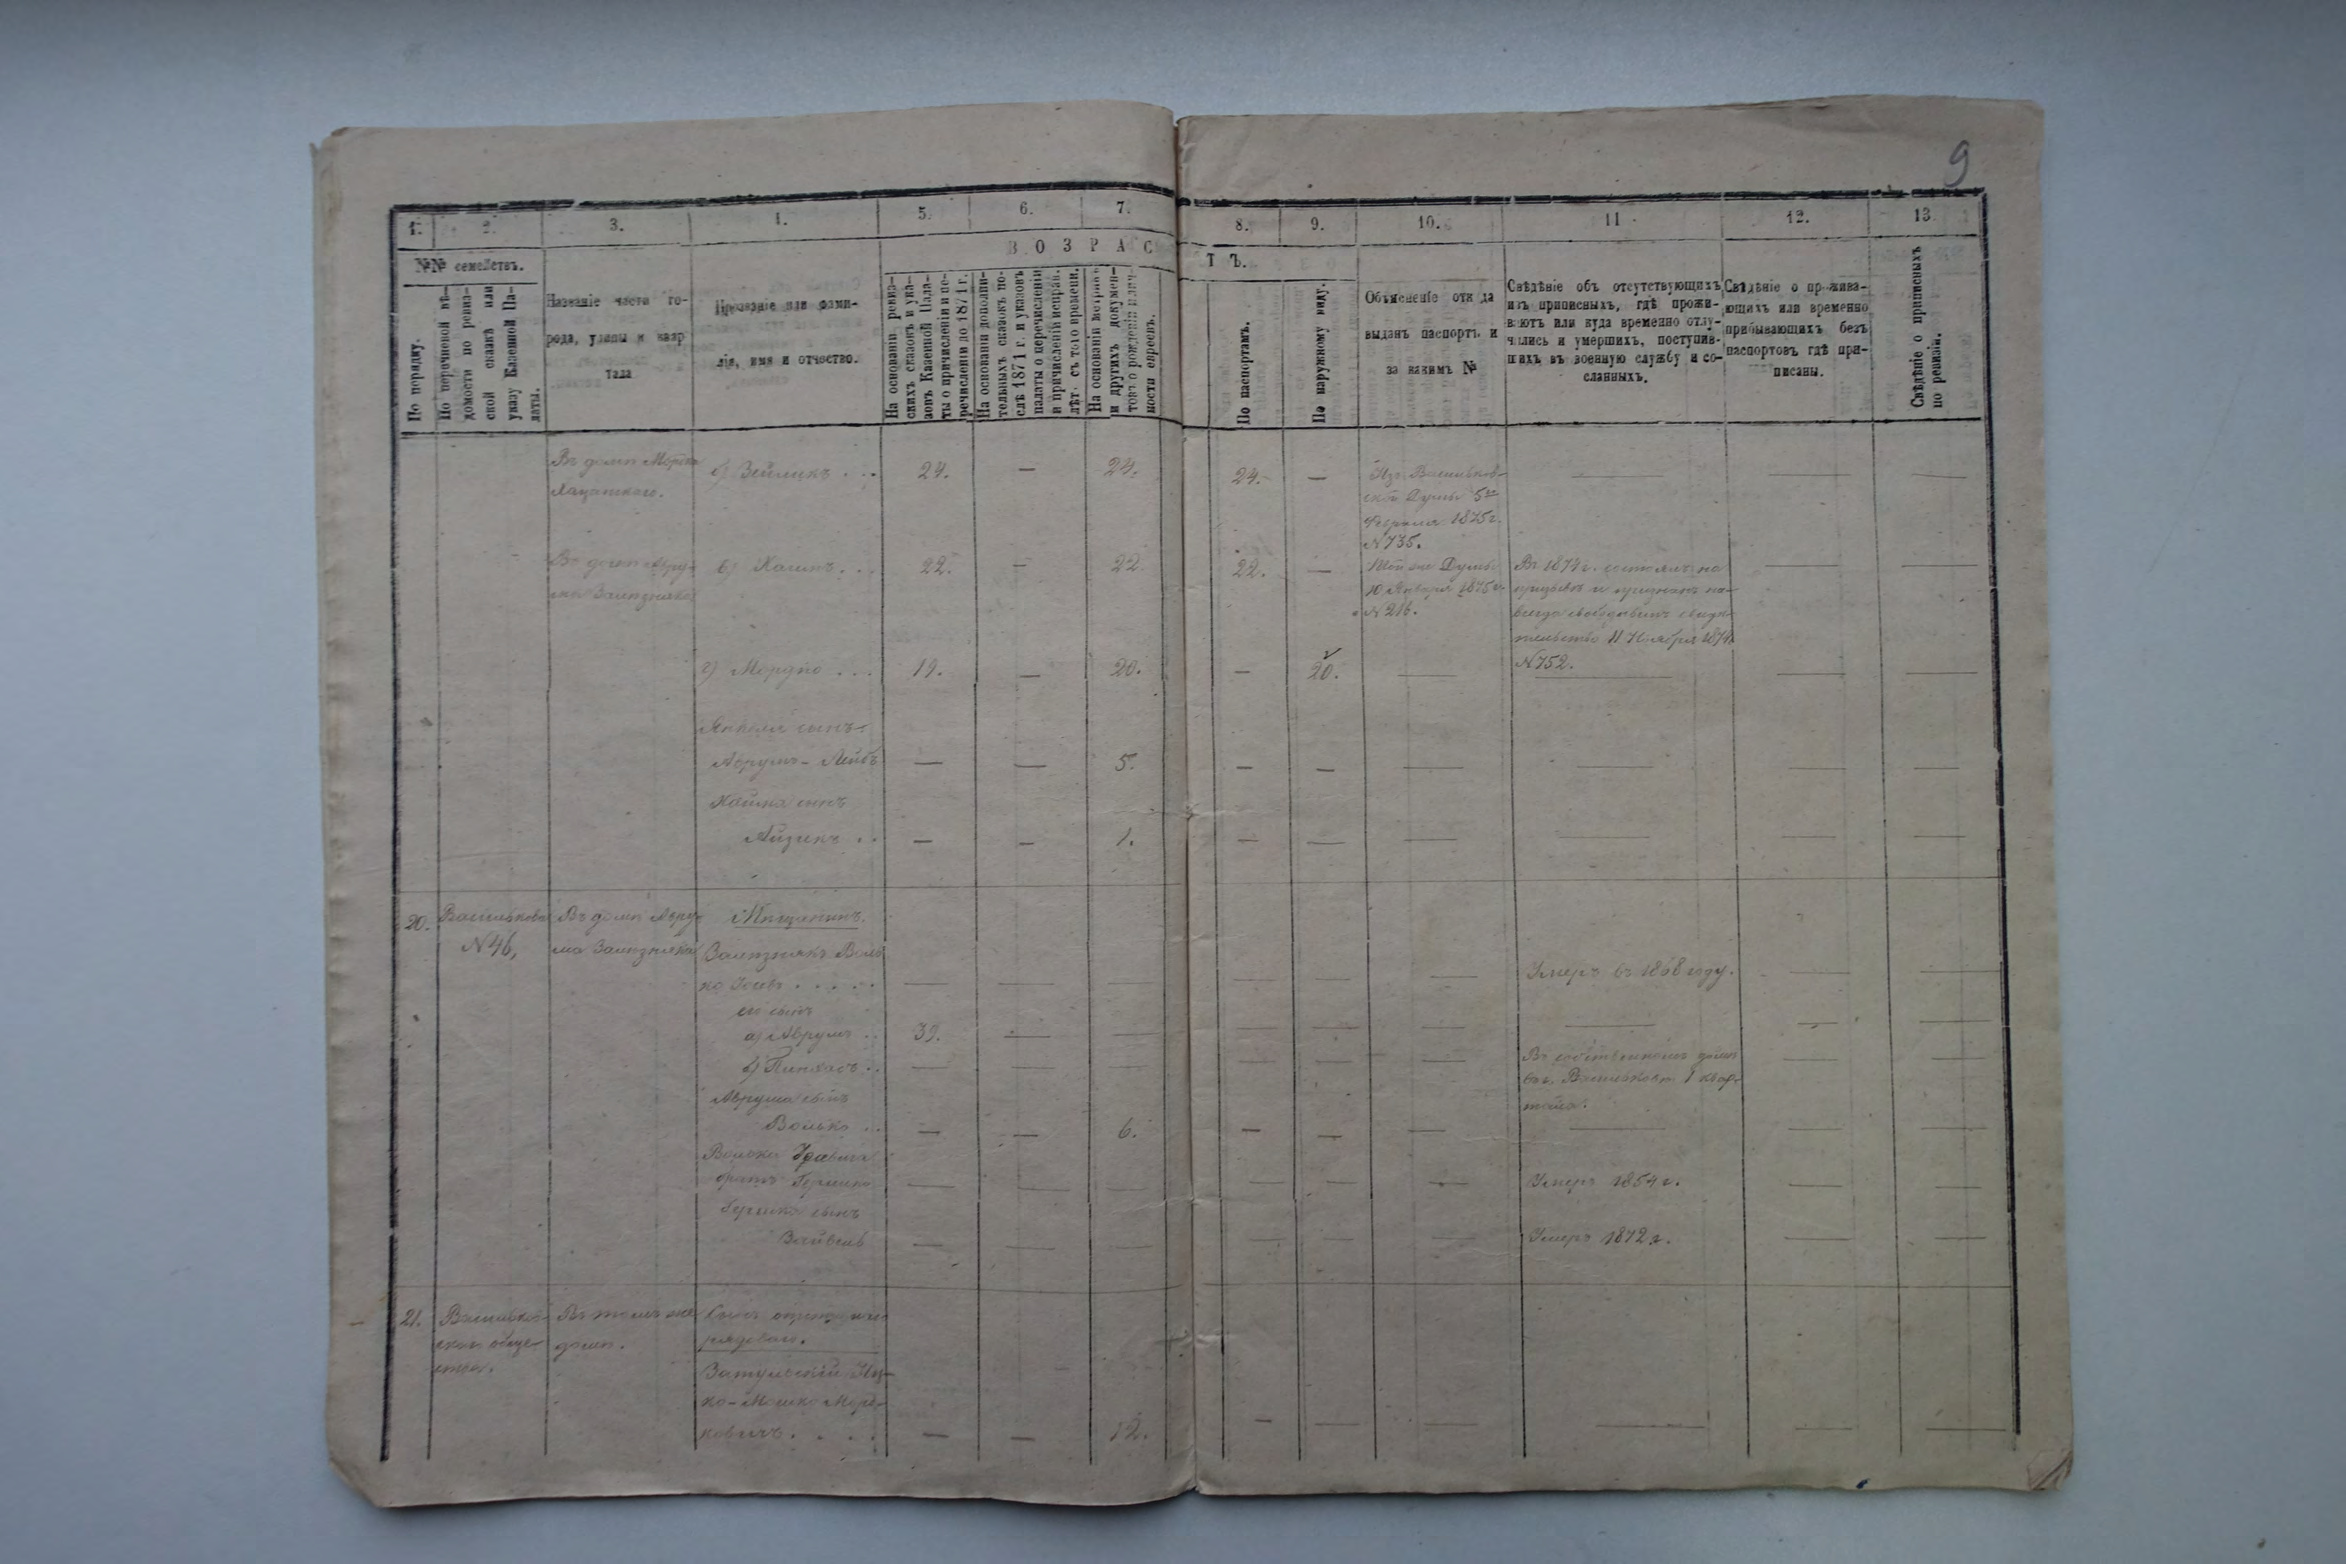 9
1.
2.
3.
4.
5.
6.
7.
8.
9.
10.
11
12.
13.
ВОЗРАС
ТЪ.
№№ семействъ.
По порядку.
По перечневой вѣ-
домости по ревиз-
ской сказкѣ или
указу Казенной Па-
латы.
Названіе части го-
рода, улицы и квар
тала
Прозваніе или фами-
лія, имя и отчество.
На основаніи ревиз-
скихъ сказокъ и ука-
зовъ Казенной Пала-
ты о причисленіи и пе-
речисленіи до 1871 г.
На основаніи дополни-
тельныхъ сказокъ по-
слѣ 1871 г. и указовъ
палаты о перечисленіи
и причисленіи исправ.
лѣт. съ того времени.
На основаніи метрик
и другихъ докумен-
товъ о рожденіи
ности евреевъ.
По паспортамъ.
По наружному виду.
Объясненіе отк да
выданъ паспортъ и
за какимъ №
Свѣдѣніе объ отсутствующихъ
изъ приписныхъ, гдѣ прожи-
ваютъ или куда временно отлу-
чились и умершихъ, поступив-
шихъ въ военную службу и со-
сланныхъ.
Свѣдѣніе о прожива-
ющихъ или временно
прибывающихъ безъ
паспортовъ гдѣ при-
писаны.
Свѣдѣніе о приписныхъ
по ревизіи.
Въ домѣ
б) Зейликъ . . . 24. — 24. 24. — Изъ Васильков-
ской Думы 5го
Февраля 1875 г.
№ 735.
Въ домѣ Авру-
ма Зализняка
в) Хаимъ . . . 22. — 22 22. — Той же Думы
10 Января 1875 г.
№ 216.
Въ 1874 г. состоялъ на
призывѣ и признанъ на-
всегда свободнымъ свидѣ-
тельство 11 Ноября 1874
№ 752.
г) Мордко . . . 19. — 20. — 20.
сынъ
Аврумъ-Лейбъ — — 5. — —
Хаима сынъ
Айзикъ . . — — 1. — —
20. Васильков
№ 46,
Въ домѣ Авру-
ма Зализняка
Мѣщанинъ.
Зализнякъ Воль
ко . . . . . — — — — — — Умеръ въ 1868 году.
его сынъ
а) Аврумъ . . 39. — —
б) Пинхасъ . . — — — — — — Въ собственномъ домѣ
въ г. Васильковѣ 1 квар-
тала.
Аврума сынъ
Волько . . — — 6. — — —
Волька
братъ Гершко — — — — — — Умеръ 1854 г.
Гершка сынъ
Зайвель — — — — — — Умеръ 1872 г.
21. Васильков-
скаго обще-
ства.
Въ томъ же
домѣ.
Сынъ
рядоваго.
Затульскій Иц-
ко-Мошко Морд-
ковичъ . . . . — — 12. — — —